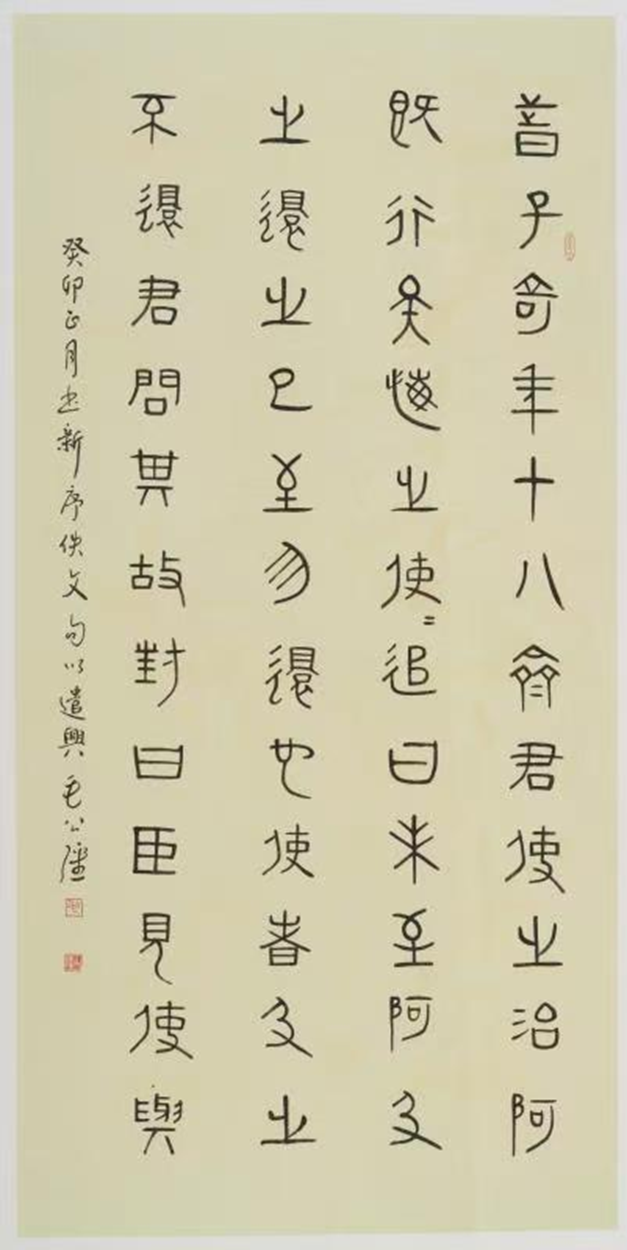 昔子奇年十八齊君使之治阿
既行矣悔之使=追曰未至阿及
之還之已至勿還也使者及之
不還君問其故對曰臣見使與
癸卯正月書新序佚文句以遣興毛公